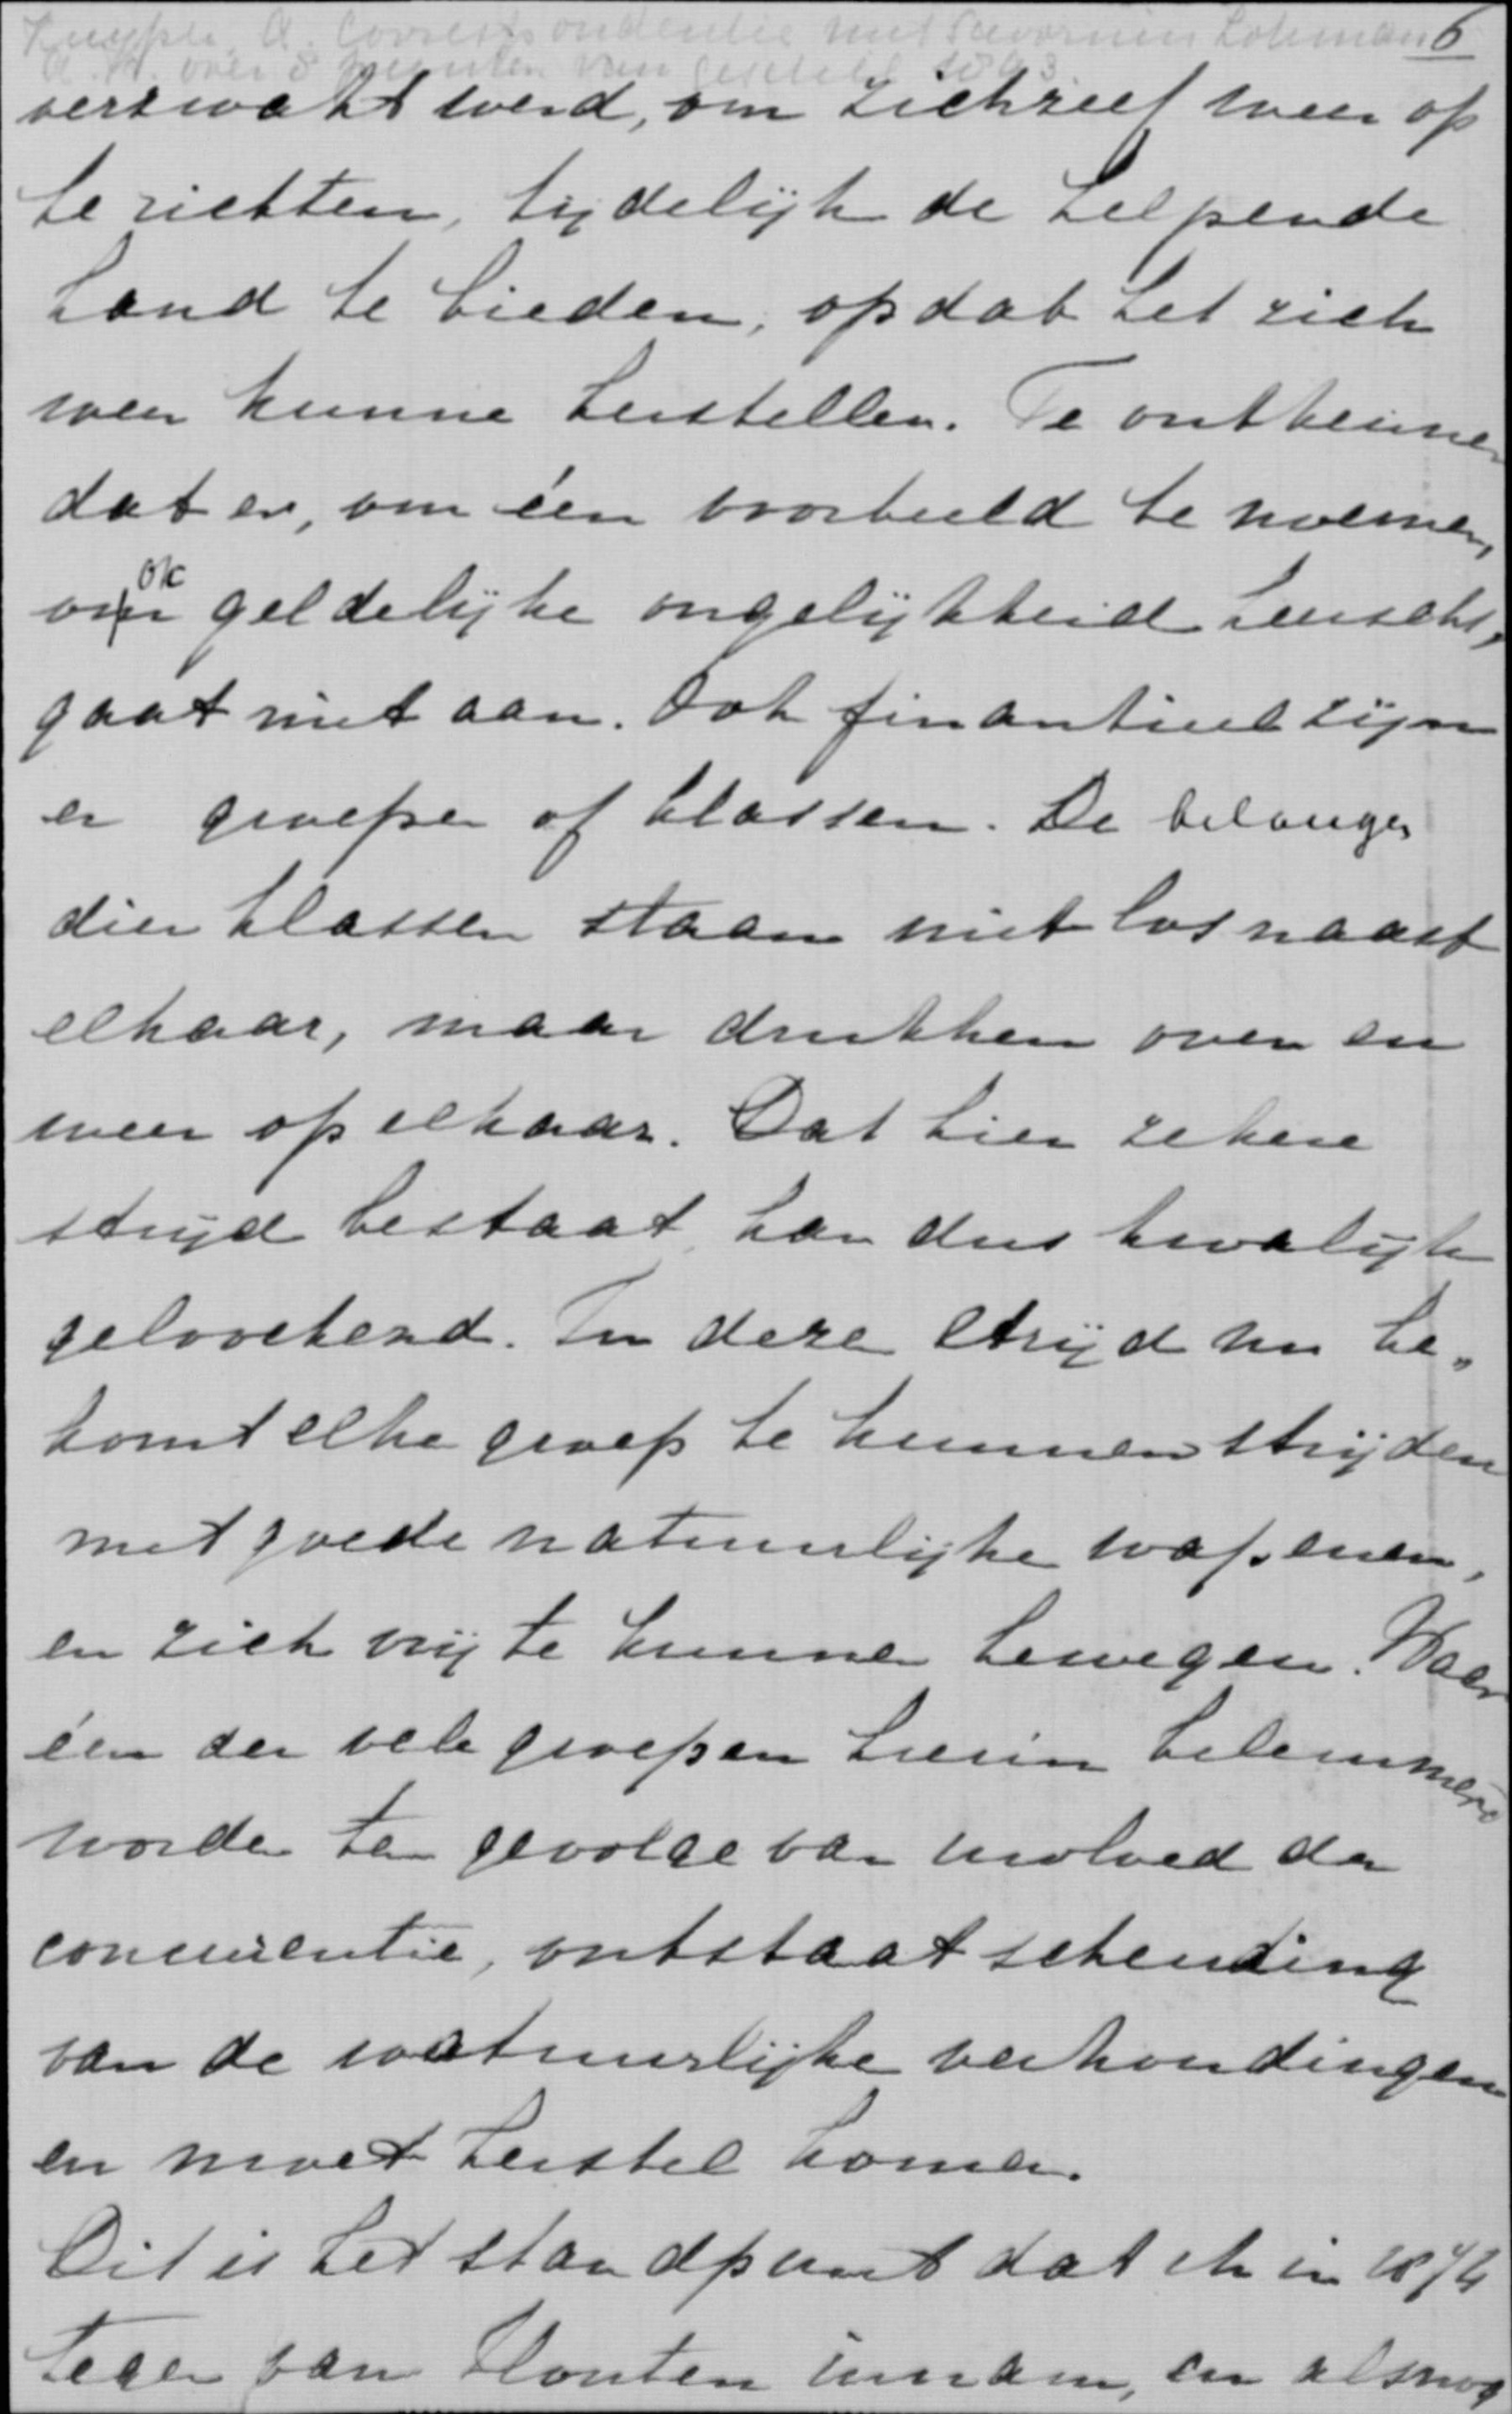 Kuyper, A. Correspondentie met Savornin Lohman 6
A.F. over 8 punten van geschil 1893
verzwakt werd, om zichzelf weer op
te richten, tijdelijk de helpende
hand te bieden, opdat het zich
weer kunne herstellen. Te ontkennen
dat er, om één voorbeeld te noemen,
ook geldelijke ongelijkheid heerscht,
gaat niet aan. Ook finantieel zijn
er groepen of klassen. De belangen
dier klassen staan niet los naast
elkaar, maar drukken over en
weer op elkaar. Dat hier zekere
strijd bestaat kan dus kwalijk
geloochend. In deze strijd nu be„
hoort elke groep te kunnen strijden
met goede natuurlijke wapenen,
en zich vrij te kunnen bewegen. Waar
één der vele groepen hierin belemmerd
worde ten gevolge van invloed der
concurrentie, ontstaat schending
van de natuurlijke verhoudingen
en moet herstel komen.
Dit is het standpunt dat ik in 1874
tegen van Houten innam, en alsnog